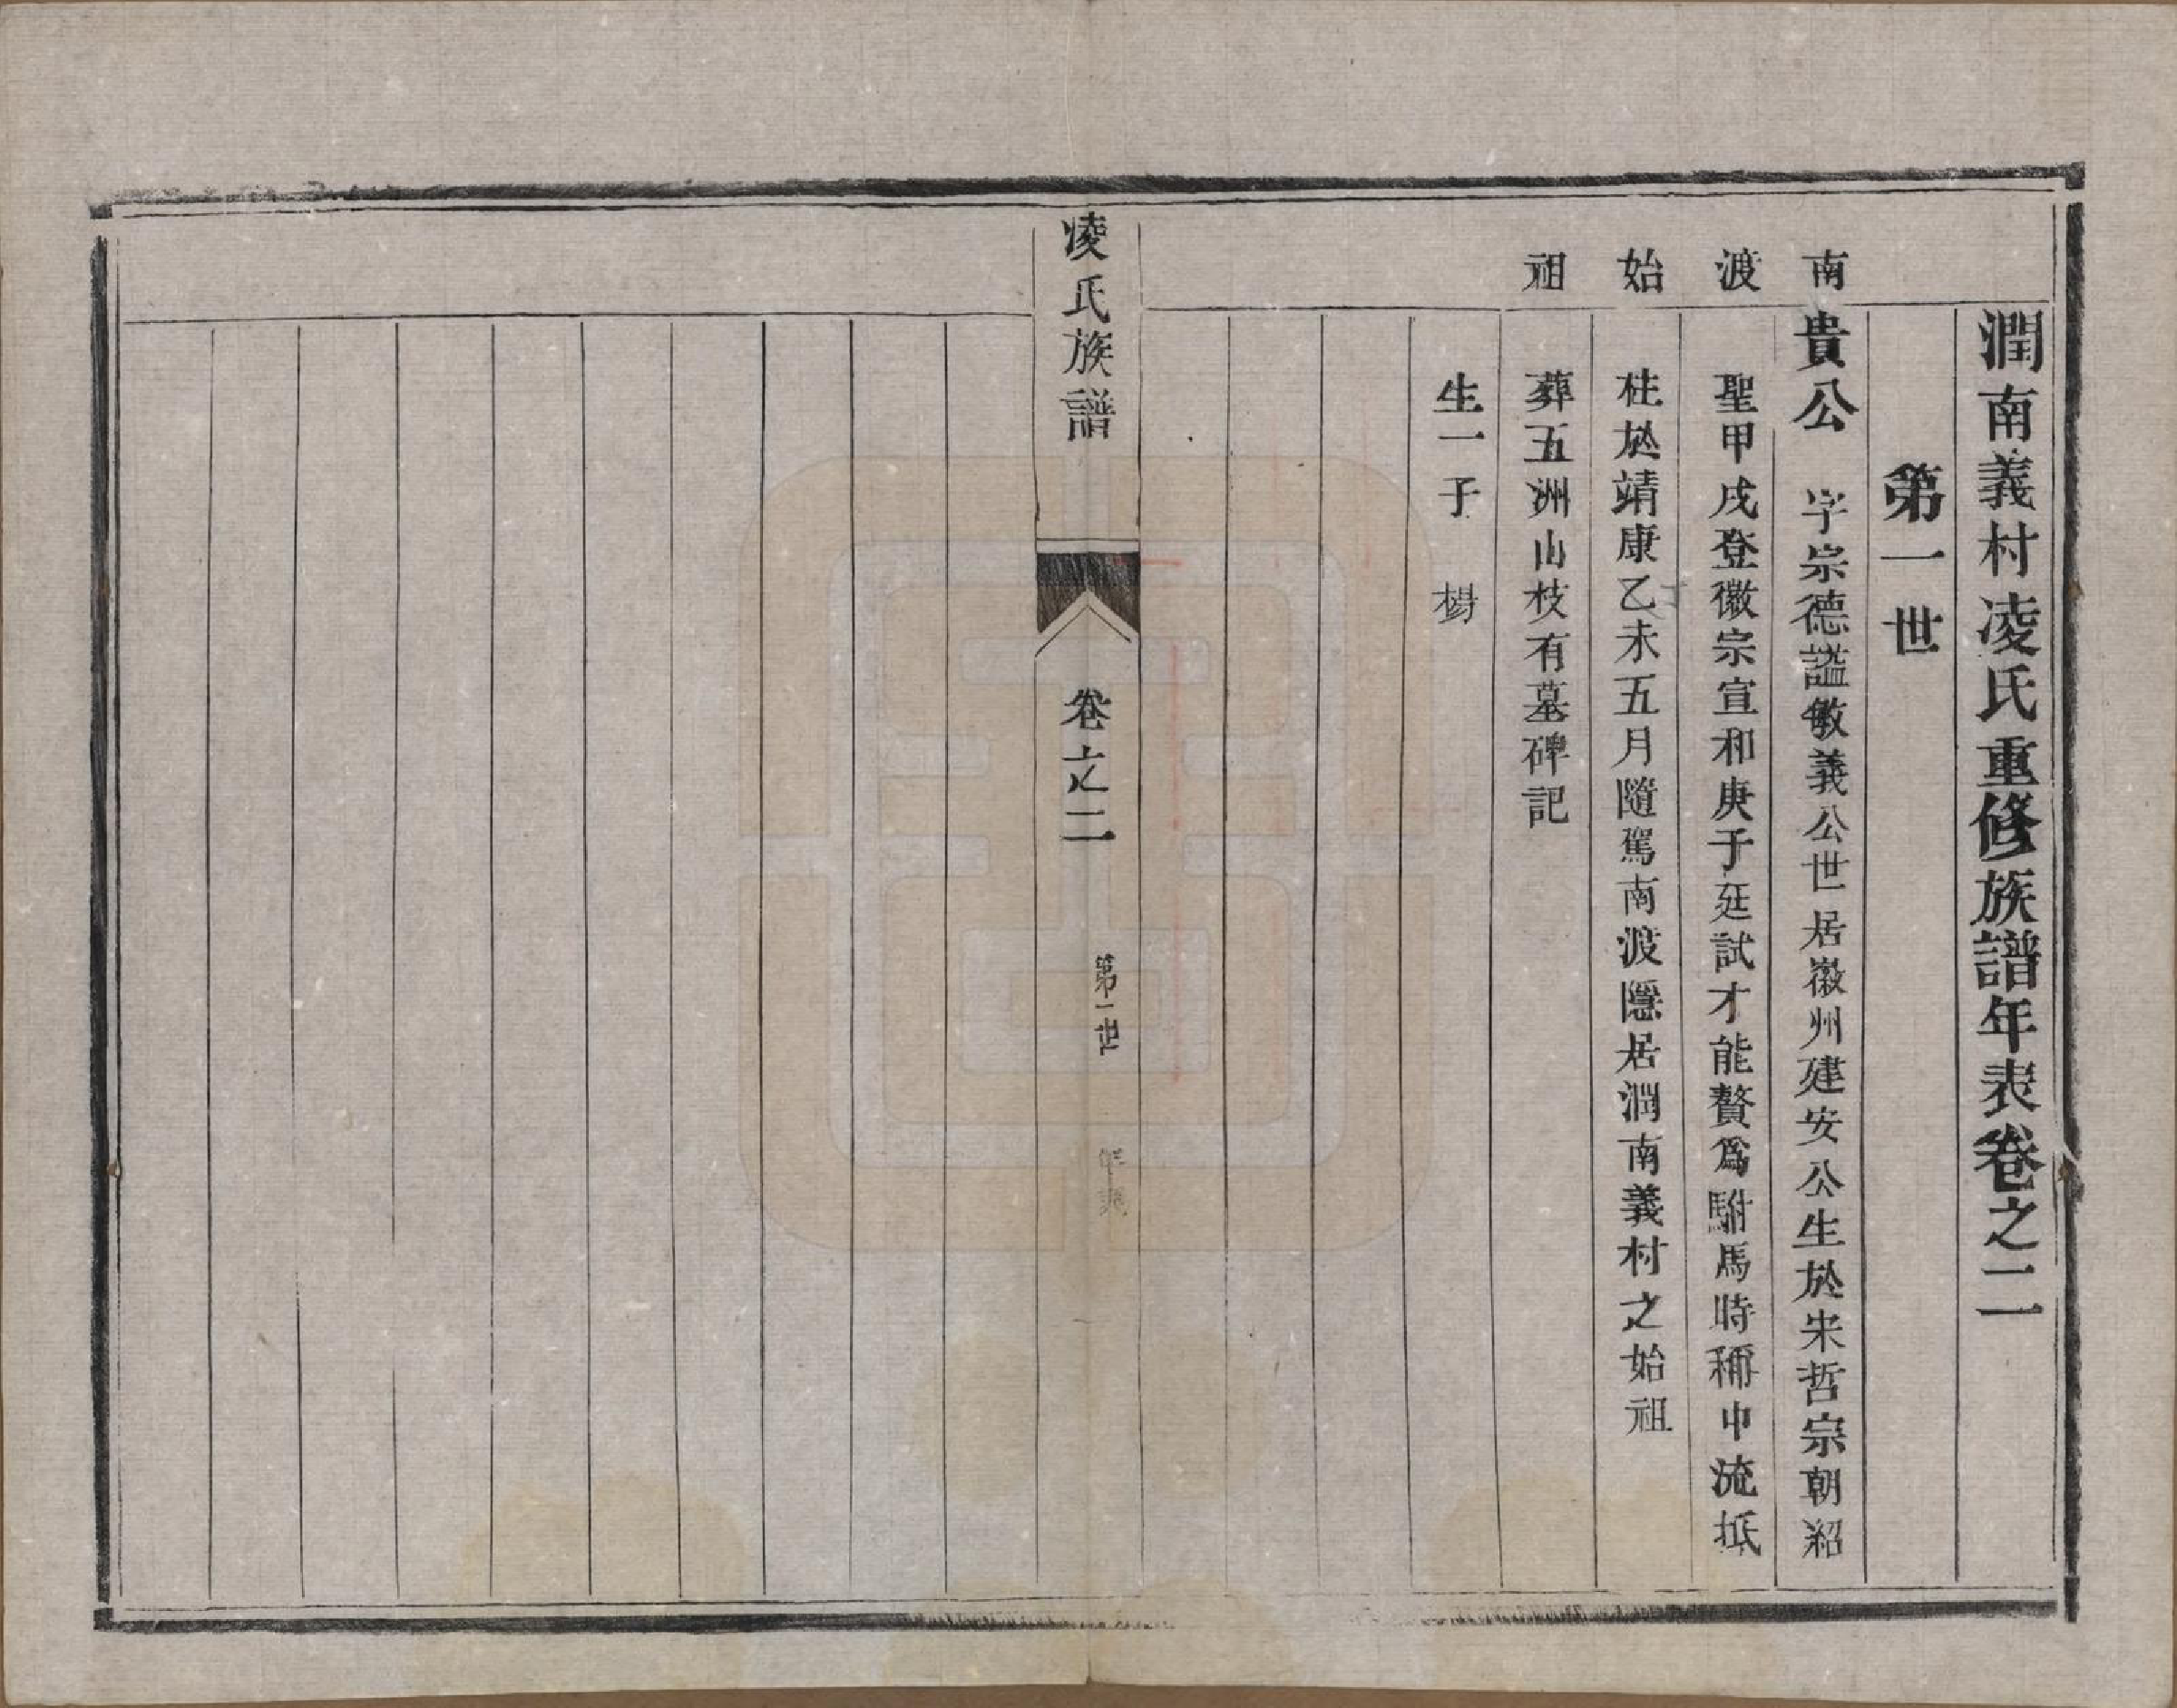 潤南義村凌氏重修族譜年表卷之二
第一世
南渡始祖
貴公 字宗德諡敏義公世居徽州建安公生於宋哲宗朝紹
聖甲戌登徽宗宣和庚子廷試才能贅爲駙馬時稱中流抵
柱於靖康乙未五月隨駕南渡隱居潤南義村之始祖
葬五洲山枝有墓碑記
生一子 楊
凌氏族譜
卷之二
第一世
年表